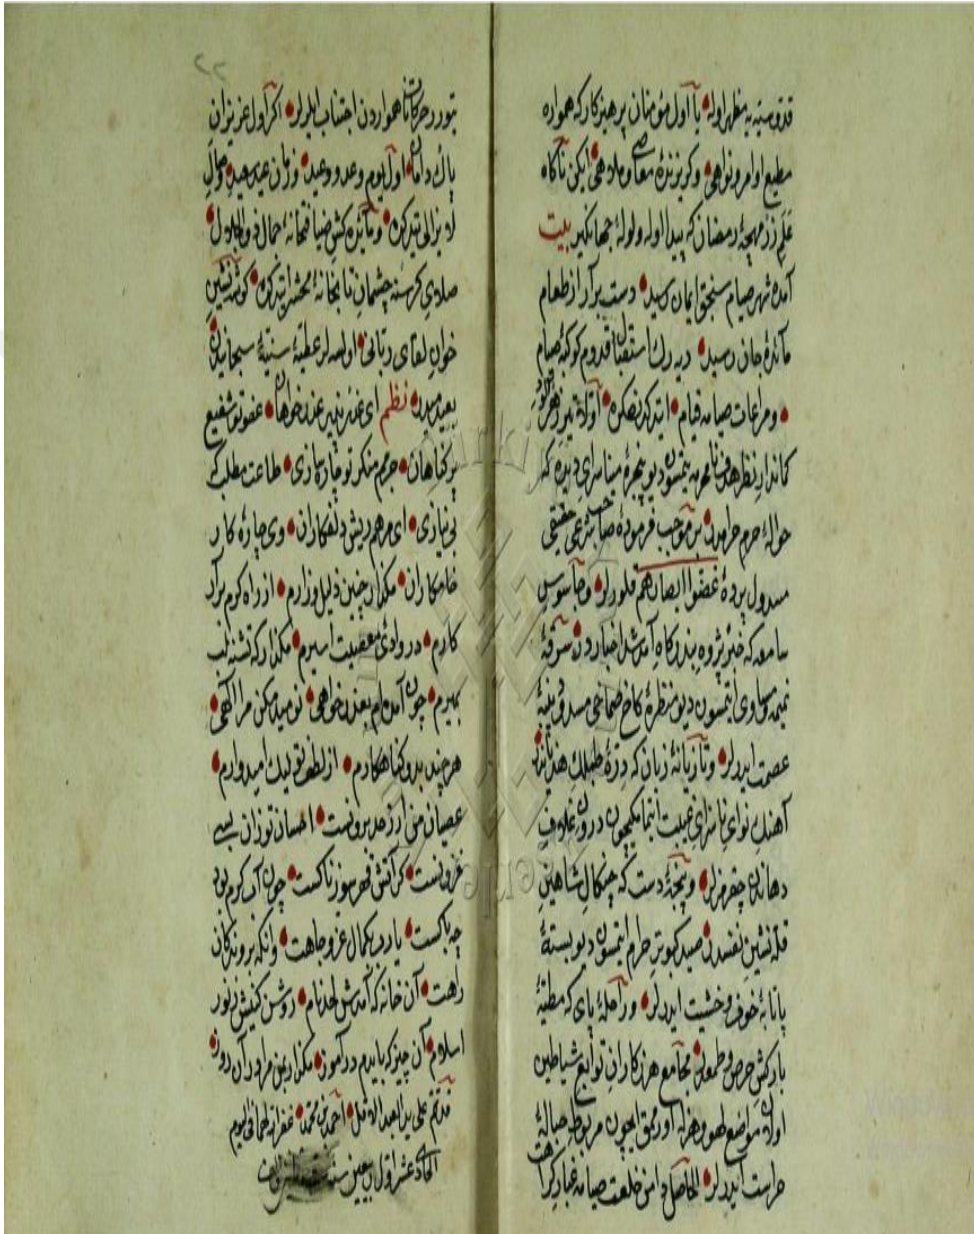 قدوسیته مظهر اوله یا اول مؤمنان پرهیزکار که همواره
مطیع اوامر و نواهی و کریزنده معاصی و ملاهی ایکن ناکاه
علم زر مهچهٔ رمضان که پیدا اوله ولولهٔ جهانکیر بیت
آمده شهر صیام سنجق ایمان رسید دست برآر از طعام
مائدهٔ جان رسید دیه رك استقبال قدوم کوکبهٔ صیام
و مراعات صیام قیام ایتدکدنصکره اولا
کماندار نظر هدف نامحرمه یتمسون دیو پنجرهٔ میناسرای دیده که
حوالهٔ حرم حرامدر بر موجب فرمودهٔ صاحب شرعی حقیقی
مسدول پردهٔ غضوا ابصارهم قلورلر و جاسوس
سامعه که خبر پژوه بندرکاه آمدشد اخباردن سرقهٔ
نمیمه و مساوی ایتمسون دیو منظرهٔ کاخ صماخی مسدود پنبهٔ
عصمت ایدرلر و تازیانهٔ زبان که درهٔ طبلك
آهنك نوای ناسزای غیبت ایتمامکیچون درون غلاف
دهاندن چقرمزلر و پنجهٔ دست که چنکال شاهین
قله نشین نفسدر صید کبوتر حرام ایتمسون دیو بستهٔ
پاتابهٔ خوف و خشیت ایدرلر و راحلهٔ پای که مطیهٔ
بارکش حرص و طمعدر مجامع هرزکاران توابع شیاطین
اولان مواضع لهو و هزله اورمق ایچون مربوط حبالهٔ
حراست ایدرلر الحاصل دامن خلعت صیامه غبار کراهت
۲۲
یتورر حرکات ناهمواردن اجتناب ایلرلر اکر اول عزیزان
پاك دامان اول یوم وعد و وعید و زمان عید سعید وصال
لایزالی یتدکده و مائده کش ضیافتخانهٔ جمال ذو الجلال
صلای کرسنه چشمان تابخانهٔ محشر ایتدکده کوشه نشین
خوان لقای ربانی اولسه لر عطیهٔ سنیهٔ سبحانیدن
بعید میدر نظم ای عذر پذیر عذرخواهان عفو تو شفیع
پر کناهان جرم منکر تو چاره سازی طاعت مطلب که
بی نیازی ای مرهم ریش دلفکاران وی چارهٔ کار
خامکاران مکذار چنین ذلیل و زارم از راه کرم برآر
کارم در وادی معصیت اسیرم مکذار که تشنه لب
بمیرم چون آمده ام بعذر خواهی نومید مکن مرا الهی
هرچند بد و کناهکارم از لطف تو لیك امیدوارم
عصیان من ار ز حد برونست احسان تو زان بسی
فزونست کر آتش قهر سوزناکست چون آب کرم بود
چه باکست یا رب بکمال عز و جاهت وانکه بروندکان
راهت آن خانه که آمدش لحد نام روشن کنیش ز نور
اسلام آن چیز که بایدم در آموز مکذار بمن مرا در آن روز
قد تم علی ید العبد الاقل احمد بن محمد غفر لهما فی یوم
الحادی عشر